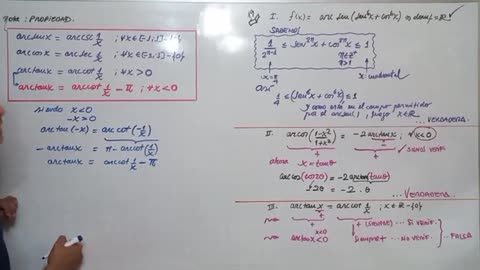 Nota: PROPIEDAD.
arcsenx = arccsc 1/x ; ∀x∈[-1;1]-{0}
arccosx = arcsec 1/x ; ∀x∈[-1;1]-{0}
arctanx = arccot 1/x ; ∀x>0
arctanx = arccot 1/x - π ; ∀x<0
siendo x<0
-x>0
arctan(-x) = arccot(-1/x)
-arctanx = π - arccot(1/x)
arctanx = arccot 1/x - π
I. f(x) = arc sen(sen⁶x+cos⁶x) ⇒ domf=ℝ
SABEMOS
1/2ⁿ⁻¹ ≤ sen²ⁿx + cos²ⁿx ≤ 1
n∈ℤ⁺
n>1
1/4 ≤ (sen⁶x + cos⁶x) ≤ 1
y como está en el campo permitido
por el arcsen, luego x∈ℝ
... VERDADERA.
II. arccos(1-x²/1+x²) = -2arctanx ; ∀x<0
+ + SI NOS VENIR.
ahora x = tanθ
arccos(cos2θ) = -2arctan(tanθ)
-2θ = -2.θ
... VERDADERA.
III. arctanx = arccot 1/x ; x∈ℝ-{0}
+ +
+ (SIEMPRE) ... SI VENIR.
x<0
arctanx<0 siempre + ... NO VENIR.
FALSA